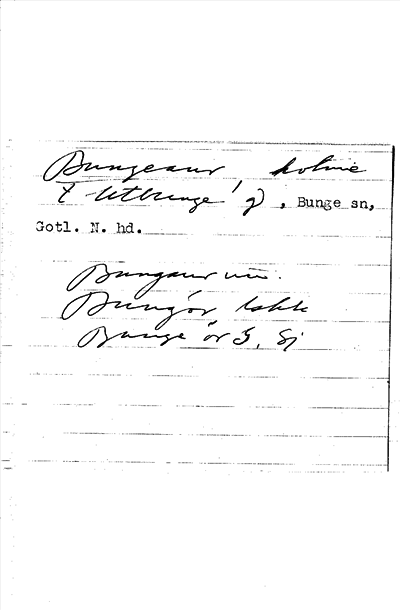 Bungeaur, holme
t Utbunge, g, Bunge sn,
Gotl. N. hd.
Bungaur
Bungör,
Bunge ör